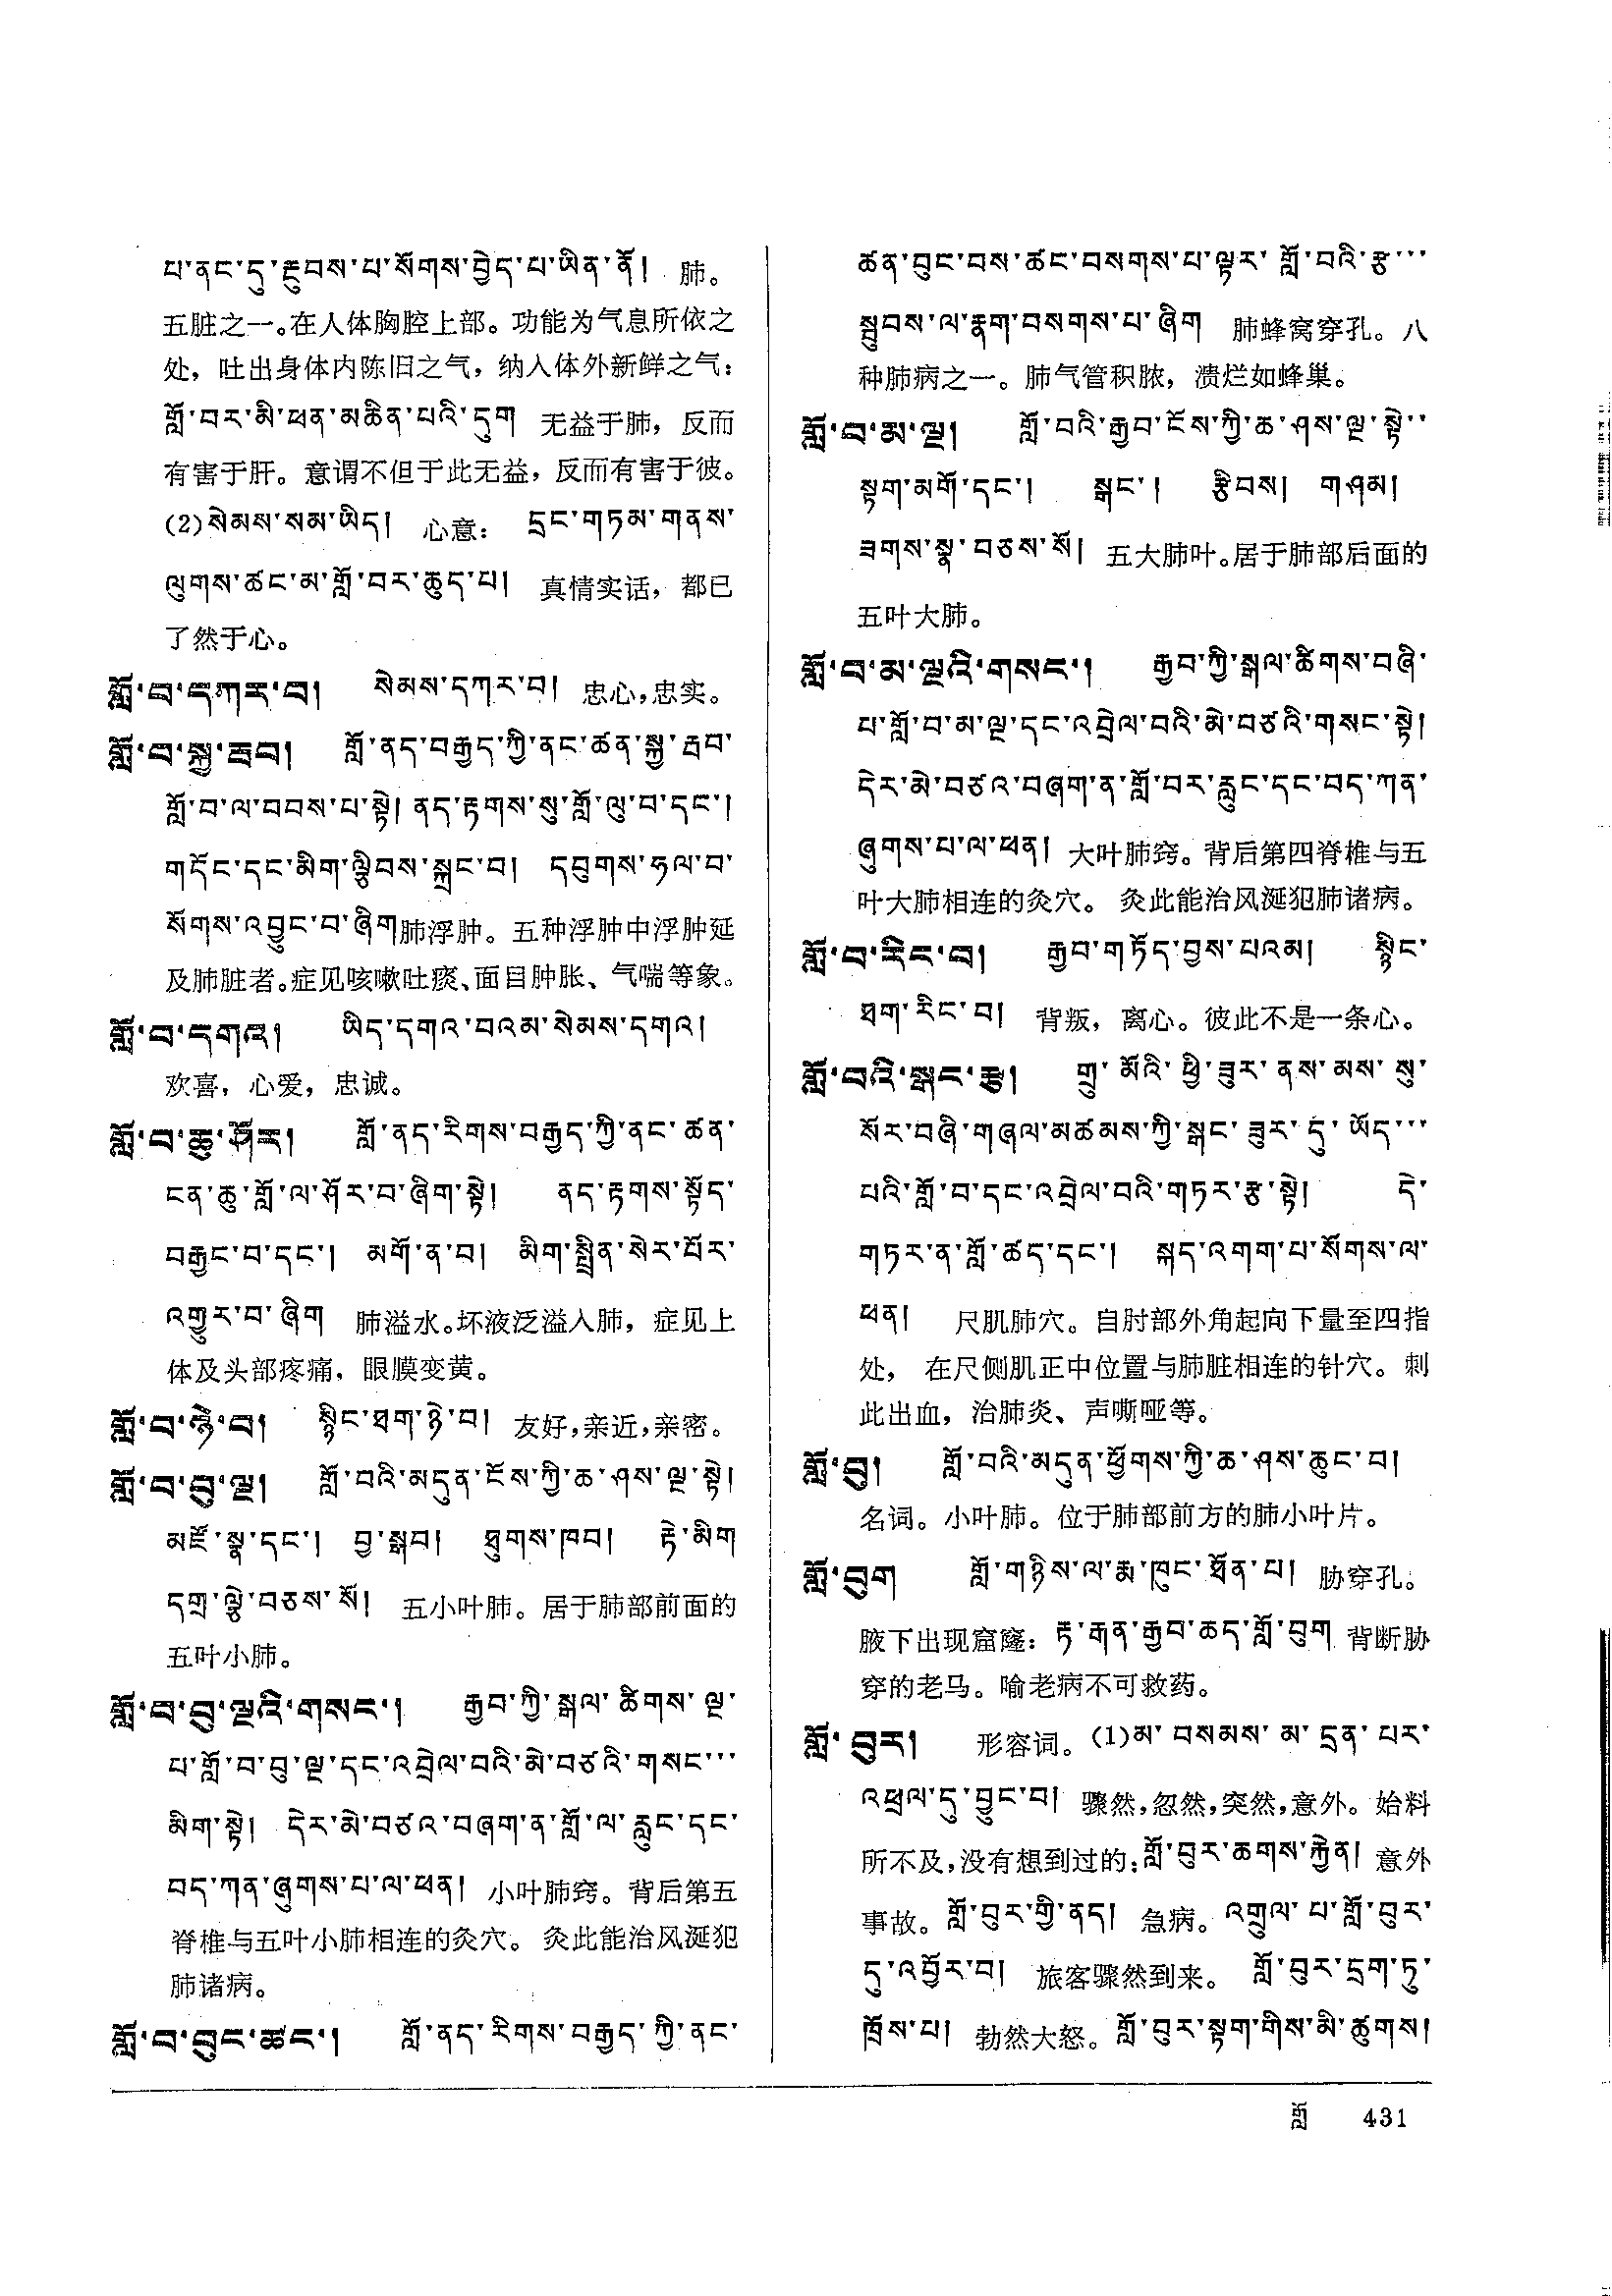 པ་ནང་དུ་རྔུབས་པ་སོགས་བྱེད་པ་ཡིན་ནོ། 肺。
五脏之一。在人体胸腔上部。功能为气息所依之
处，吐出身体内陈旧之气，纳入体外新鲜之气：
གློ་བར་མི་ཕན་མཆིན་པའི་དུག 无益于肺，反而
有害于肝。意谓不但于此无益，反而有害于彼。
(2)སེམས་སམ་ཡིད། 心意： དྲང་གཏམ་གནས་
ལུགས་ཚང་མ་གློ་བར་ཆུད་པ། 真情实话，都已
了然于心。
གློ་བ་དཀར་བ། སེམས་དཀར་བ། 忠心，忠实。
གློ་བ་སྐྱ་རྦབ། གློ་ནད་བརྒྱད་ཀྱི་ནང་ཚན་སྐྱ་རྦབ་
གློ་བ་ལ་བབས་པ་སྟེ། ནད་རྟགས་སུ་གློ་ལུ་བ་དང་།
གདོང་དང་མིག་ལྕིབས་སྐྲང་བ། དབུགས་ཧལ་བ་
སོགས་འབྱུང་བ་ཞིག肺浮肿。五种浮肿中浮肿延
及肺脏者。症见咳嗽吐痰、面目肿胀、气喘等象。
གློ་བ་དགའ། ཡིད་དགའ་བའམ་སེམས་དགའ།
欢喜，心爱，忠诚。
གློ་བ་ཆུ་ཤོར། གློ་ནད་རིགས་བརྒྱད་ཀྱི་ནང་ཚན་
ངན་ཆུ་གློ་ལ་ཤོར་བ་ཞིག་སྟེ། ནད་རྟགས་སྟོད་
བརྒྱང་བ་དང་། མགོ་ན་བ། མིག་སྤྲིན་སེར་པོར་
འགྱུར་བ་ཞིག 肺溢水。坏液泛溢入肺，症见上
体及头部疼痛，眼膜变黄。
གློ་བ་ཉེ་བ། སྙིང་ཐག་ཉེ་བ། 友好，亲近，亲密。
གློ་བ་བུ་ལྔ། གློ་བའི་མདུན་ངོས་ཀྱི་ཆ་ཤས་ལྔ་སྟེ།
མཛོ་སྣ་དང་། བྱ་སྒབ། ཐུགས་ཁབ། རྟེ་མིག
དགྲ་ལྕེ་བཅས་སོ། 五小叶肺。居于肺部前面的
五叶小肺。
གློ་བ་བུ་ལྔའི་གསང་། རྒྱབ་ཀྱི་སྒལ་ཚིགས་ལྔ་
པ་གློ་བ་བུ་ལྔ་དང་འབྲེལ་བའི་མེ་བཙའི་གསང་···
མིག་སྟེ། དེར་མེ་བཙའ་བཞག་ན་གློ་ལ་རླུང་དང་
བད་ཀན་ཞུགས་པ་ལ་ཕན། 小叶肺窍。背后第五
脊椎与五叶小肺相连的灸穴。灸此能治风涎犯
肺诸病。
གློ་བ་བུང་ཚང་། གློ་ནད་རིགས་བརྒྱད་ཀྱི་ནང་
ཚན་བུང་བས་ཚང་བསགས་པ་ལྟར་གློ་བའི་རྩ···
སྦུབས་ལ་རྣག་བསགས་པ་ཞིག 肺蜂窝穿孔。八
种肺病之一。肺气管积脓，溃烂如蜂巢。
གློ་བ་མ་ལྔ། གློ་བའི་རྒྱབ་ངོས་ཀྱི་ཆ་ཤས་ལྔ་སྟེ··
སྟག་མགོ་དང་། སྒང་། རྩིབས། གཤམ།
ཟགས་སྣ་བཅས་སོ། 五大肺叶。居于肺部后面的
五叶大肺。
གློ་བ་མ་ལྔའི་གསང་། རྒྱབ་ཀྱི་སྒལ་ཚིགས་བཞི་
པ་གློ་བ་མ་ལྔ་དང་འབྲེལ་བའི་མེ་བཙའི་གསང་སྟེ།
དེར་མེ་བཙའ་བཞག་ན་གློ་བར་རླུང་དང་བད་ཀན་
ཞུགས་པ་ལ་ཕན། 大叶肺窍。背后第四脊椎与五
叶大肺相连的灸穴。灸此能治风涎犯肺诸病。
གློ་བ་རིང་བ། རྒྱབ་གཏོད་བྱས་པའམ། སྙིང་
ཐག་རིང་བ། 背叛，离心。彼此不是一条心。
གློ་བའི་སྒང་རྩ། གྲུ་མོའི་ཕྱི་ཟུར་ནས་མས་སུ་
སོར་བཞི་གཞལ་མཚམས་ཀྱི་སྒང་ཟུར་དུ་ཡོད···
པའི་གློ་བ་དང་འབྲེལ་བའི་གཏར་རྩ་སྟེ། དེ་
གཏར་ན་གློ་ཚད་དང་། སྐད་འགག་པ་སོགས་ལ་
ཕན། 尺肌肺穴。自肘部外角起向下量至四指
处，在尺侧肌正中位置与肺脏相连的针穴。刺
此出血，治肺炎、声嘶哑等。
གློ་བུ། གློ་བའི་མདུན་ཕྱོགས་ཀྱི་ཆ་ཤས་ཆུང་བ།
名词。小叶肺。位于肺部前方的肺小叶片。
གློ་བུག གློ་གཉིས་ལ་རྨ་ཁུང་ཐོན་པ། 胁穿孔。
腋下出现窟窿：རྟ་རྒན་རྒྱབ་ཆད་གློ་བུག 背断胁
穿的老马。喻老病不可救药。
གློ་བུར། 形容词。(1)མ་བསམས་མ་དྲན་པར་
འཕྲལ་དུ་བྱུང་བ། 骤然，忽然，突然，意外。始料
所不及，没有想到过的：གློ་བུར་ཆགས་རྐྱེན། 意外
事故。གློ་བུར་གྱི་ནད། 急病。འགྲུལ་པ་གློ་བུར་
དུ་འབྱོར་བ། 旅客骤然到来。གློ་བུར་དྲག་ཏུ་
ཁྲོས་པ། 勃然大怒。གློ་བུར་སྟག་གིས་མི་ཚུགས།
གློ 431